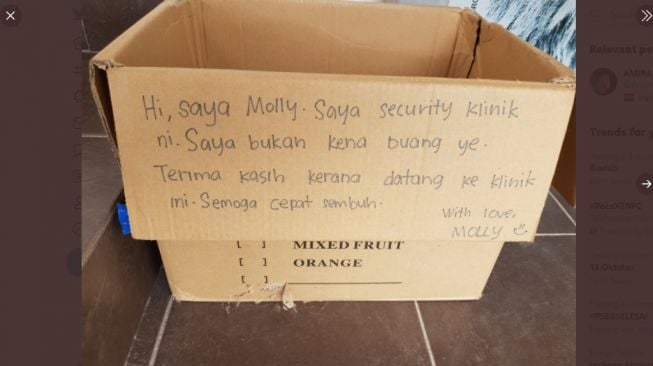 Hi, saya Molly. Saya security klinik
ni. Saya bukan kena buang ye.
Terima kasih kerana datang ke klinik
ini. Semoga cepat sembuh.
With love,
MOLLY
[ ] MIXED FRUIT
[ ] ORANGE
[ ]
Relevant pe
Trends for y
#PocoX3NFC
13 Oktober
#PSBBSELESAI